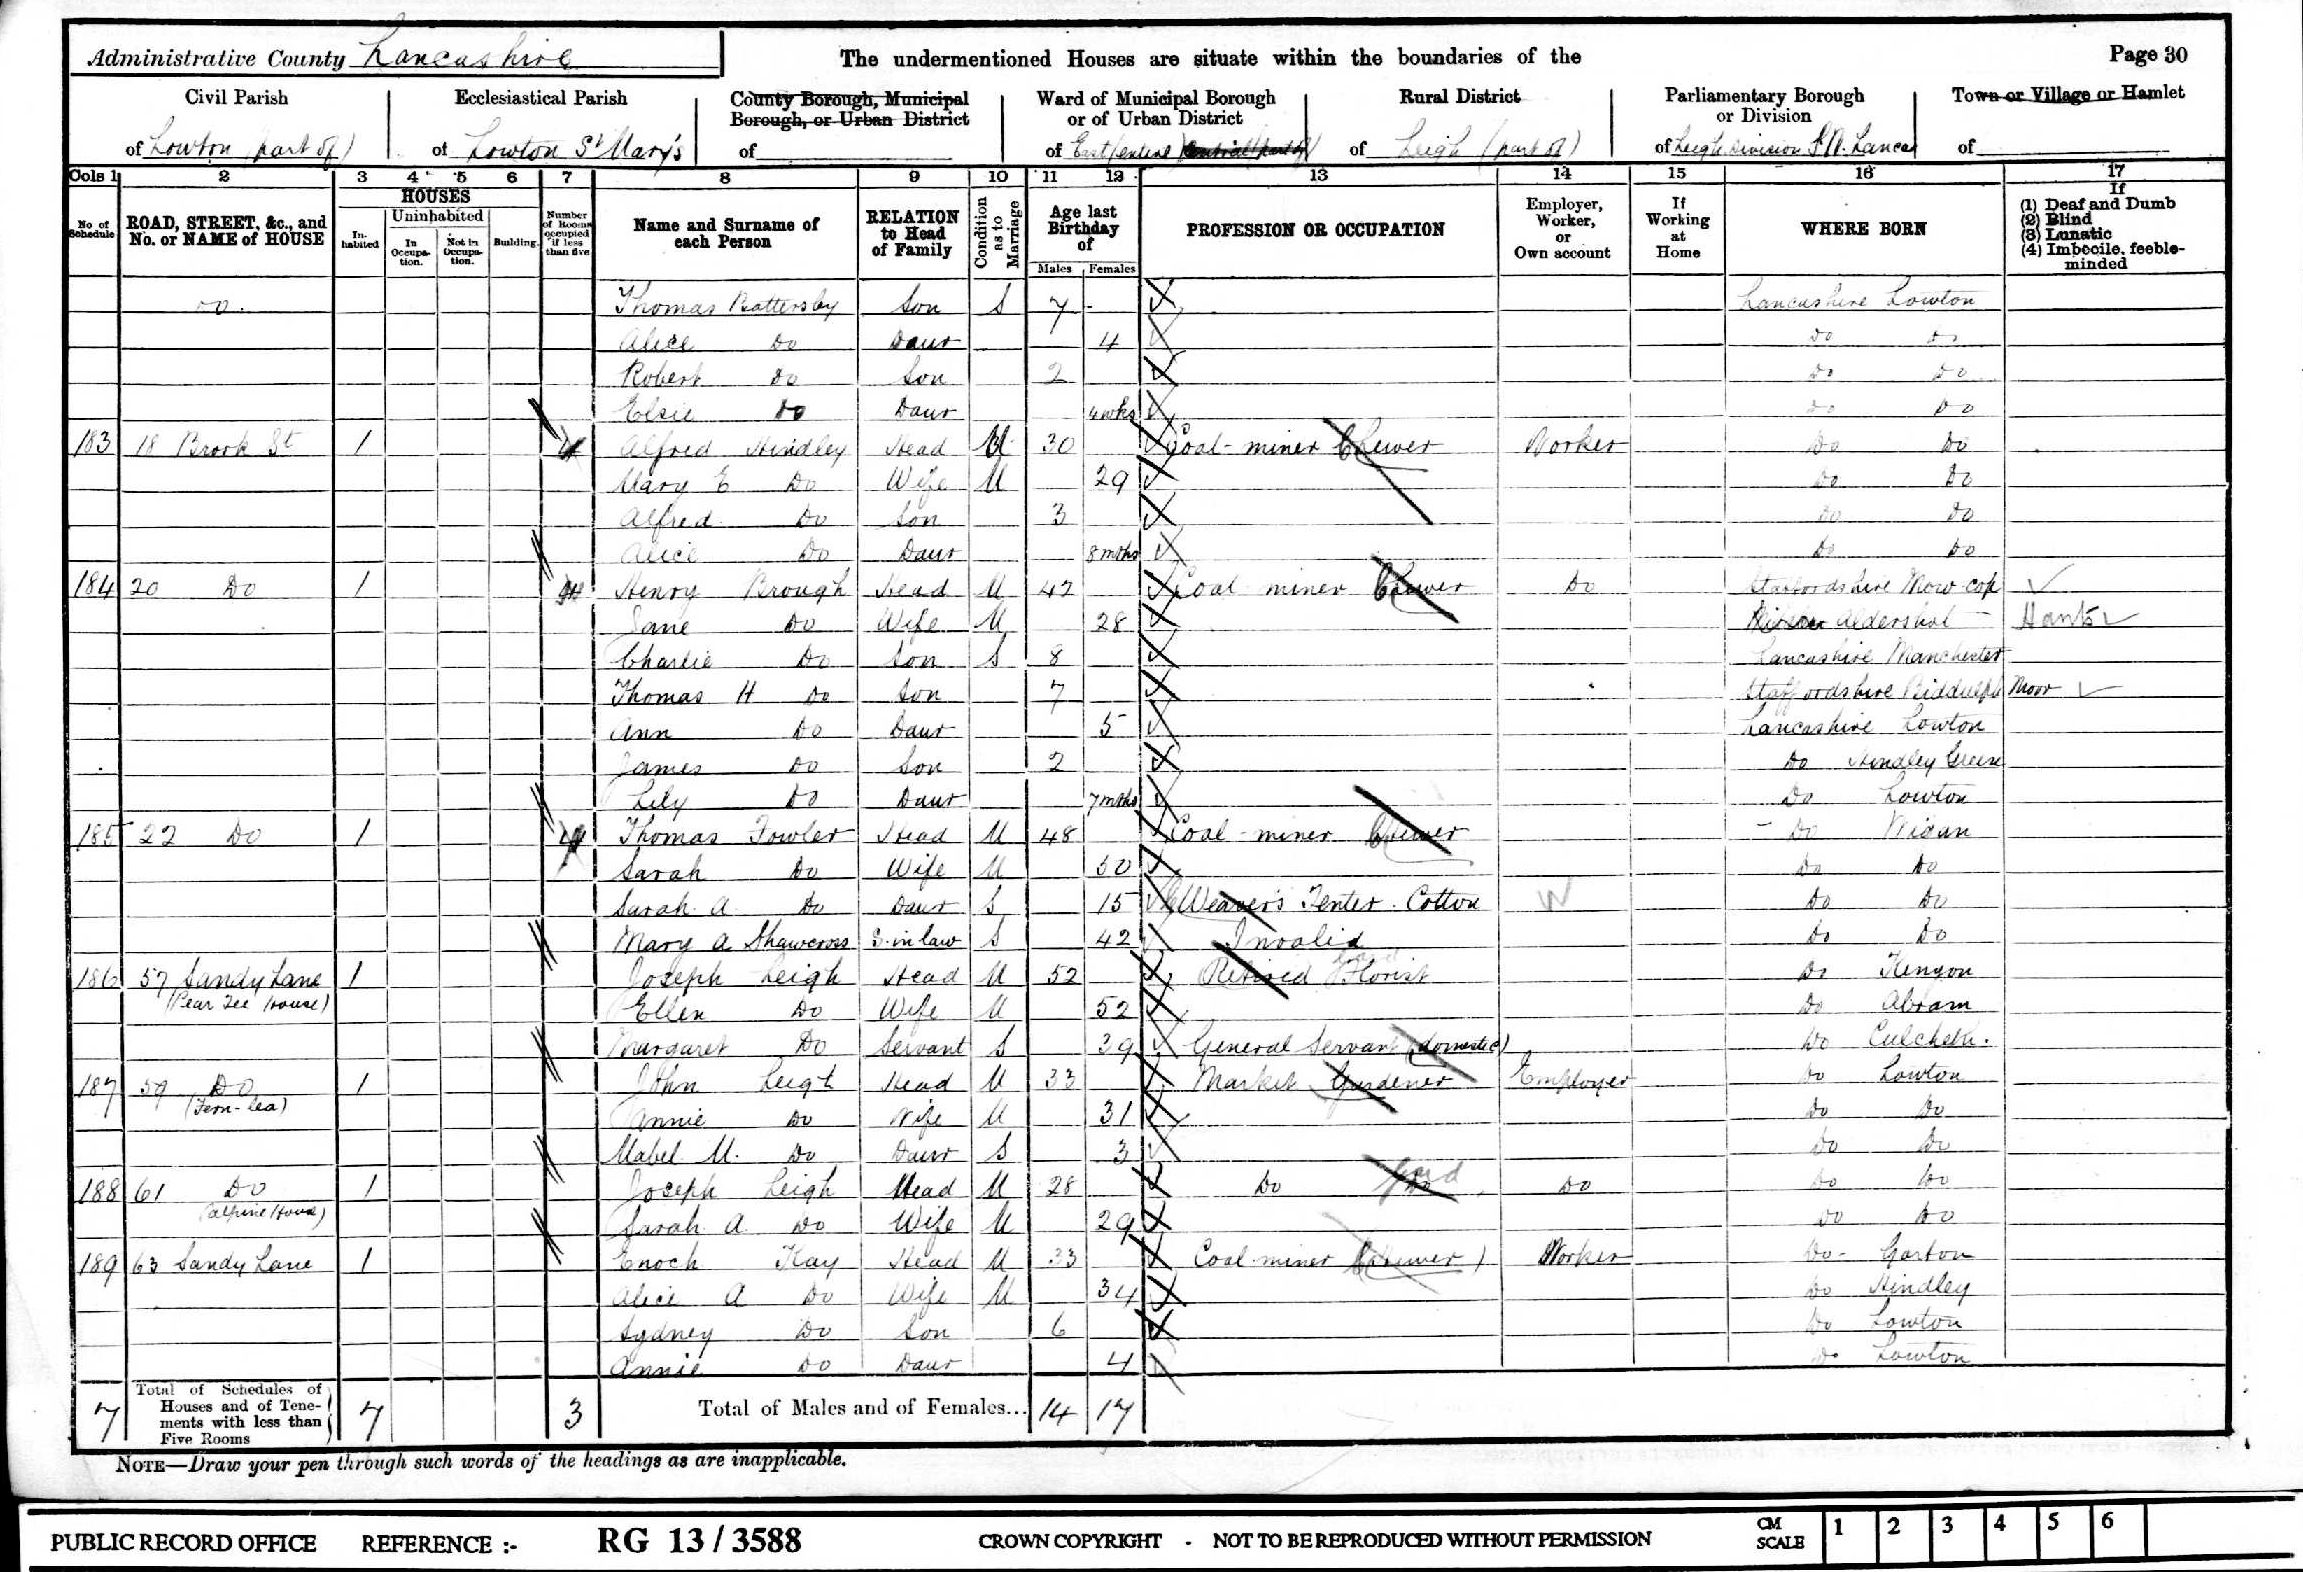 Administrative County Lancashire The undermentioned Houses are situate within the boundaries of the Page 30
Civil Parish Ecclesiastical Parish County Borough, Municipal Borough, or Urban District Ward of Municipal Borough or of Urban District Rural District Parliamentary Borough or Division Town or Village or Hamlet
of Lowton (part of) of Lowton St Mary's of of East of Leigh (part of) of Leigh Division S.W. Lancas of
Cols 1 2 3 4 5 6 7 8 9 10 11 12 13 14 15 16 17
No of Schedule ROAD, STREET, &c., and No. or NAME of HOUSE HOUSES In-habited Uninhabited In Occupa-tion. Not in Occupa-tion. Building. Number of Rooms occupied if less than five Name and Surname of each Person RELATION to Head of Family Condition as to Marriage Age last Birthday of Males Females PROFESSION OR OCCUPATION Employer, Worker, or Own account If Working at Home WHERE BORN If (1) Deaf and Dumb (2) Blind (3) Lunatic (4) Imbecile, feeble-minded
Do. Thomas Battersby Son S 7 - Lancashire Lowton
Alice Do Daur 4 Do Do
Robert Do Son 2 Do Do
Elsie Do Daur 4 wks Do Do
183 18 Brook St 1 4 Alfred Hindley Head M 30 Coal-miner Hewer Worker Do Do
Mary E Do Wife M 29 Do Do
Alfred Do Son 3 Do Do
Alice Do Daur 8 mths Do Do
184 20 Do 1 4 Henry Brough Head M 42 Coal miner Hewer Do Staffordshire Mow cop
Jane Do Wife M 28 Aldershot Hants
Charlie Do Son S 8 Lancashire Manchester
Thomas H Do Son 7 Staffordshire Biddulph Moor
Ann Do Daur 5 Lancashire Lowton
James Do Son 2 Do Hindley Green
Lily Do Daur 7 mths Do Lowton
185 22 Do 1 4 Thomas Fowler Head M 48 Coal-miner Hewer Do Wigan
Sarah Do Wife M 50 Do Do
Sarah A Do Daur S 15 Weavers Tenter. Cotton W Do Do
Mary A Shawcross S-in law S 42 Invalid Do Do
186 57 Sandy Lane 1 Joseph Leigh Head M 52 Retired Florist Do Kenyon
(Pear Tee House) Ellen Do Wife M 52 Do Abram
Margaret Do Servant S 39 General Servant (domestic) Do Culcheth.
187 59 Do 1 John Leigh Head M 33 Market Gardener Employer Do Lowton
(Fern-lea) Annie Do Wife M 31 Do Do
Mabel M. Do Daur S 3 Do Do
188 61 Do 1 Joseph Leigh Head M 28 Do Do Do Do Do
(Alpine House) Sarah A Do Wife M 29 Do Do
189 63 Sandy Lane 1 Enoch Kay Head M 33 Coal miner (Hewer) Worker Do - Gorton
Alice A Do Wife M 34 Do Hindley
Sydney Do Son 6 Do Lowton
Annie Do Daur 4 Do Lowton
7 Total of Schedules of Houses and of Tene-ments with less than Five Rooms 7 3 Total of Males and of Females... 14 17
NOTE—Draw your pen through such words of the headings as are inapplicable.
PUBLIC RECORD OFFICE REFERENCE :- RG 13 / 3588 CROWN COPYRIGHT - NOT TO BE REPRODUCED WITHOUT PERMISSION CM SCALE 1 2 3 4 5 6